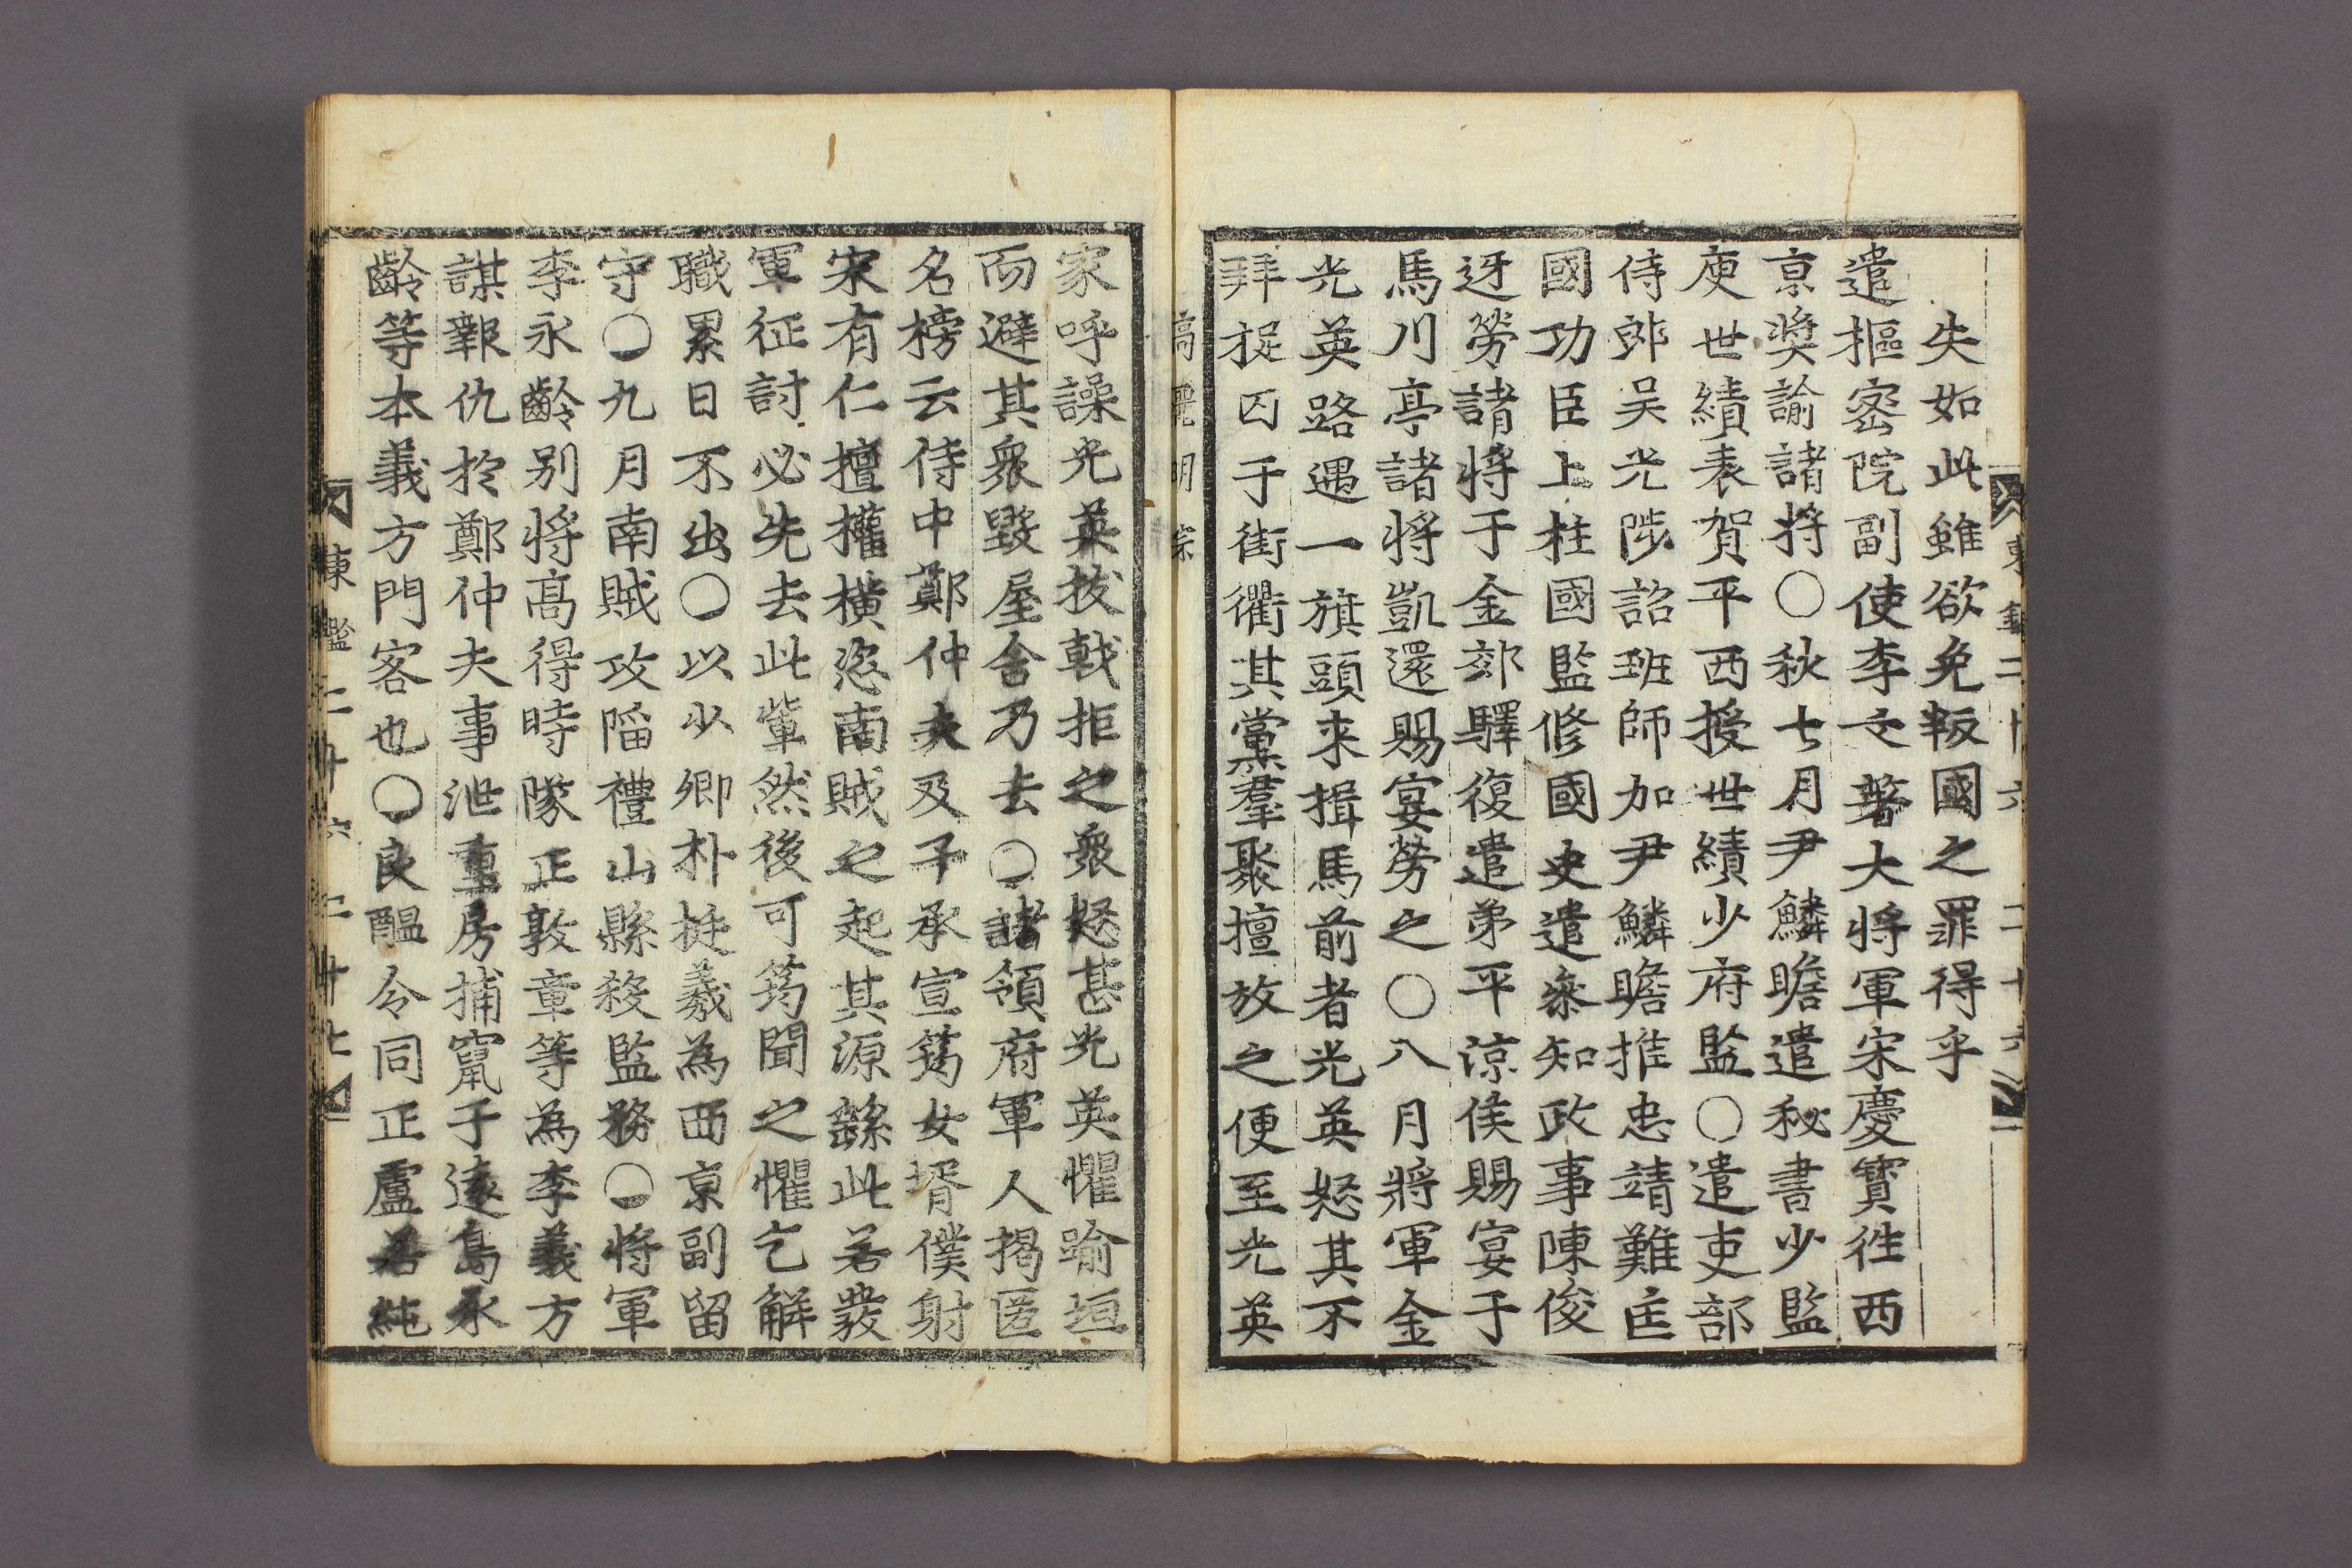 失如此雖欲免叛國之罪得乎
遣樞密院副使李文著大將軍宋慶寶徃西
京奬諭諸將○秋七月尹鱗瞻遣秘書少監
庾世績表賀平西授世績少府監○遣吏部
侍郎吴光陟詔班師加尹鱗瞻推忠靖難匡
國功臣上柱國監修國史遣叅知政事陳俊
迓勞諸將于金郊驛復遣弟平凉侯賜宴于
馬川亭諸將凱還賜宴勞之○八月將軍金
光英路遇一旗頭来揖馬前者光英怒其不
拜捉囚于街衢其黨羣聚擅放之便至光英
高麗明宗
家呼譟光英拔戟拒之衆怒甚光英懼踰垣
而避其衆毀屋舍乃去○諸領府軍人揭匿
名榜云侍中鄭仲夫及子承宣筠女壻僕射
宋有仁擅權橫恣南賊之起其源繇此若發
軍征討必先去此軰然後可筠聞之懼乞解
職累日不出○以少卿朴挺羲為西京副留
守○九月南賊攻陷禮山縣殺監務○將軍
李永齡别將高得時隊正敦章等為李義方
謀報仇於鄭仲夫事泄重房捕竄于遠島永
齡等本義方門客也○良醞令同正盧若純
東鑑二十六 二十七